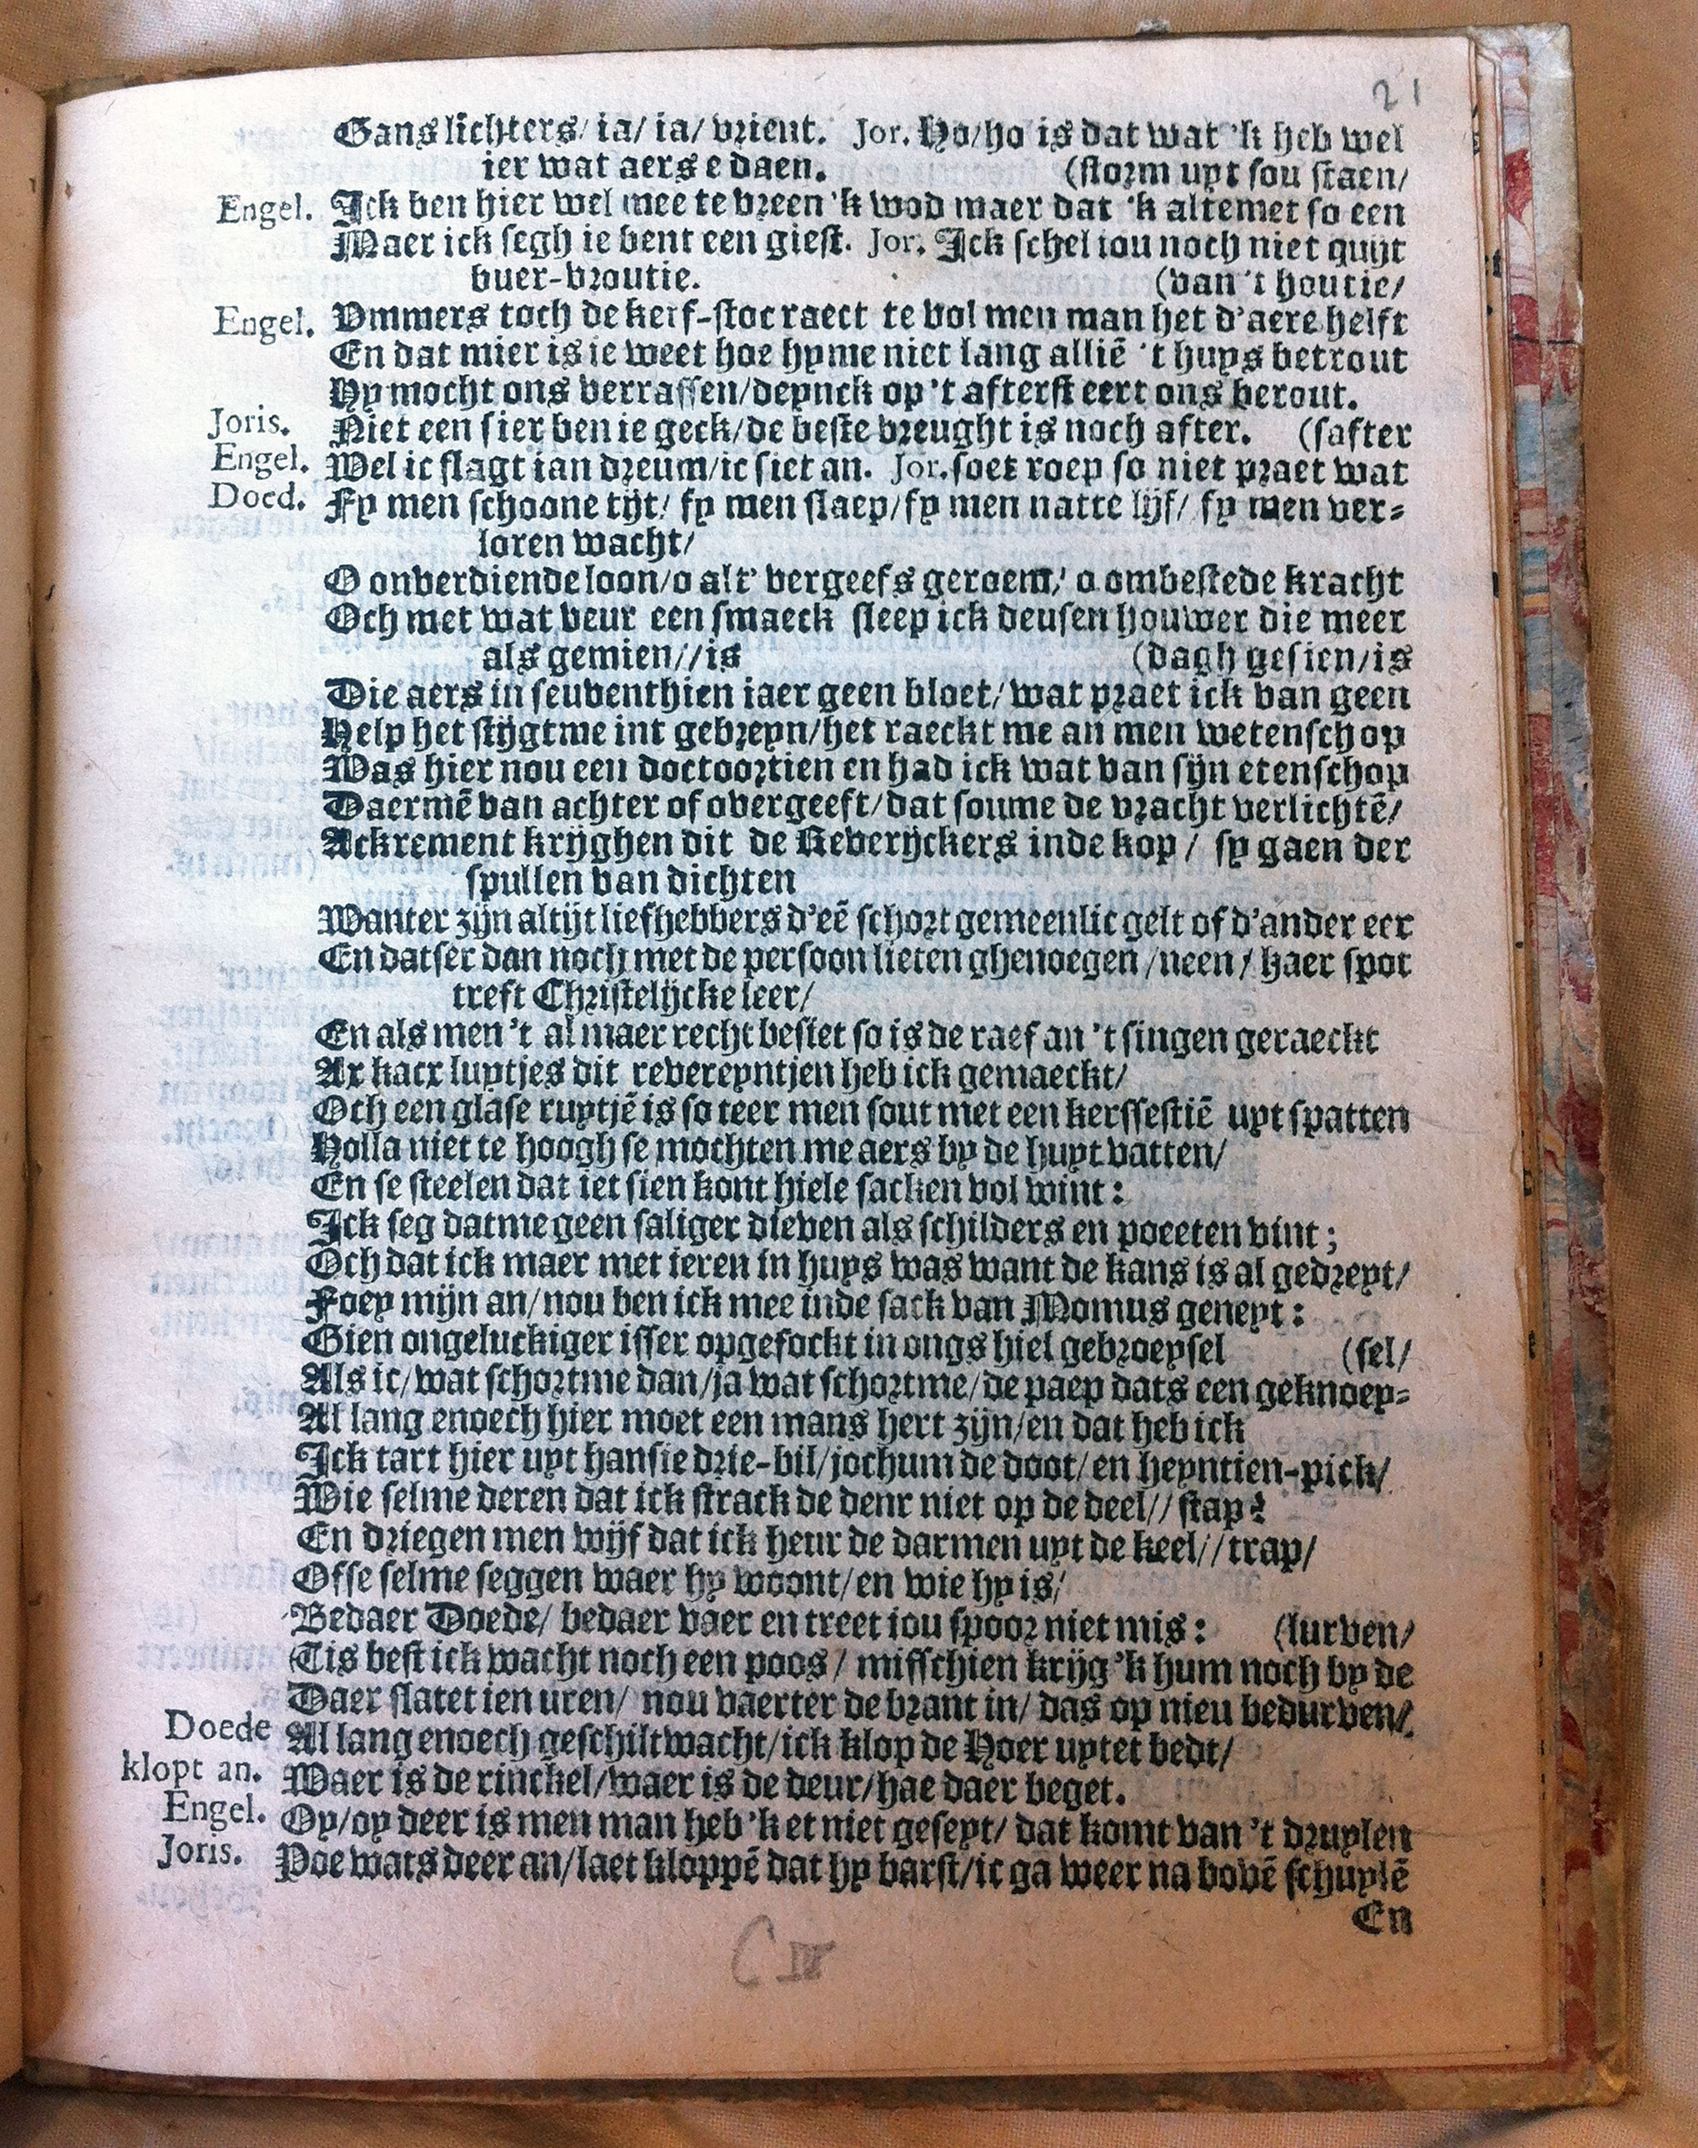 21
Gans lichters/ ia/ ia/ vrient. Jor. Ho/ho is dat wat 'k heb wel
ier wat aers e daen. (storm uyt sou staen/
Engel. Ick ben hier wel mee te vreen 'k wod maer dat 'k altemet so een
Maer ick segh ie bent een giest. Jor. Ick schel iou noch niet quyt
buer-vroutie. (van 't houtie/
Engel. Ommers toch de kerf-stoc raect te vol men man het d'aere helft
En dat mier is ie weet hoe hyme niet lang alliē 't huys betrout
Hy mocht ons verrassen/deynck op 't afterst eert ons berout.
Joris. Niet een sier ben ie geck/de beste vreught is noch after. (safter
Engel. Wel ic slagt ian dreum/ic siet an. Jor. soet roep so niet praet wat
Doed. Fy men schoone tijt/ fy men slaep/fy men natte lijf/ fy men ver=
loren wacht/
O onverdiende loon/o alt' vergeefs geroem/ o ombestede kracht
Och met wat veur een smaeck sleep ick deusen houwer die meer
als gemien//is (dagh gesien/is
Die aers in seuventhien iaer geen bloet/ wat praet ick van geen
Help het stijgtme int gebreyn/het raeckt me an men wetenschop
Was hier nou een doctoortien en had ick wat van sijn etenschop
Daermē van achter of overgeeft/dat soume de vracht verlichtē/
Ackrement krijghen dit de Reverijckers inde kop/ sy gaen der
spullen van dichten
Wanter zijn altijt liefhebbers d'eē schort gemeenlic gelt of d'ander eer
En datser dan noch met de persoon lieten ghenoegen/neen/ haer spot
treft Christelijcke leer/
En als men 't al maer recht besiet so is de raef an 't singen geraeckt
Ar katr luytjes dit revereyntjen heb ick gemaeckt/
Och een glase ruytjē is so teer men sout met een kerssestiē uyt spatten
Holla niet te hoogh se mochten me aers by de huyt vatten/
En se steelen dat iet sien kont hiele sacken vol wint:
Ick seg datme geen saliger dieven als schilders en poeeten vint;
Och dat ick maer met ieren in huys was want de kans is al gedreyt/
Foey mijn an/nou ben ick mee inde sack van Momus geneyt:
Gien ongeluckiger isser opgefockt in ongs hiel gebroeysel (sel/
Als ic/wat schortme dan/ja wat schortme/de paep dats een geknoey=
Al lang enoech hier moet een mans hert zijn/en dat heb ick
Ick tart hier uyt hansie drie-bil/jochum de doot/en heyntien-pick/
Wie selme deren dat ick strack de denr niet op de deel//stap?
En driegen men wijf dat ick heur de darmen uyt de keel//trap/
Ofse selme seggen waer hy woont/en wie hy is/
Bedaer Doede/ bedaer vaer en treet iou spoor niet mis: (lurven/
Tis best ick wacht noch een poos/ misschien krijg 'k hum noch by de
Daer slatet ien uren/ nou vaerter de brant in/ das op nieu bedurven/
Doede Al lang enoech geschiltwacht/ick klop de Hoer uytet bedt/
klopt an. Waer is de rinckel/waer is de deur/hae daer beget.
Engel. Oy/oy deer is men man heb 'k et niet geseyt/ dat komt van 't druylen
Joris. Poe wats deer an/laet kloppē dat hy barst/ic ga weer na bovē schuylē
En
C IV